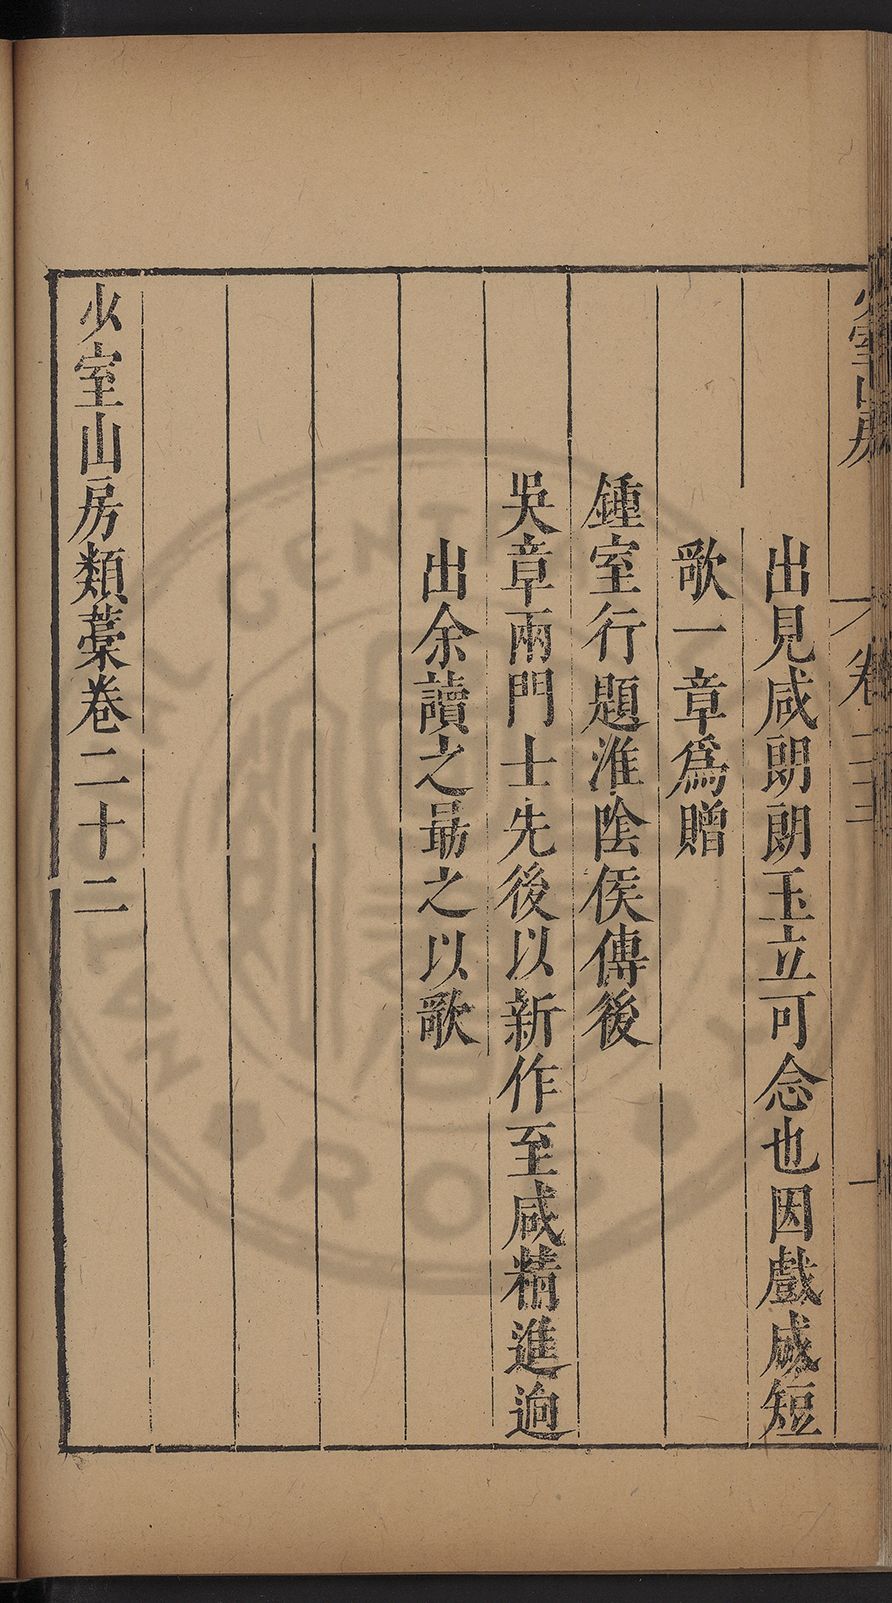 出見咸朗朗玉立可念也因戲成短
歌一章爲贈
鍾室行題淮陰侯傳後
吳章兩門士先後以新作至咸精進逈
出余讀之勗之以歌
少室山房類藁卷二十二